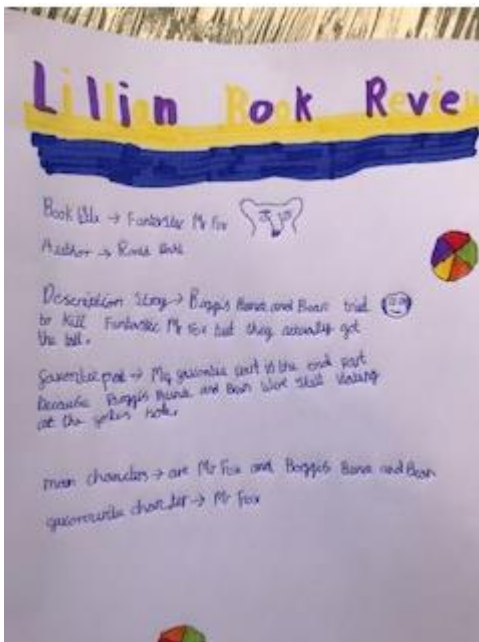 Lillian Book Review
Book title → Fantastic Mr Fox
Author → Roald Dahl
Description Story → Boggis Bunce and Bean tried
to kill Fantastic Mr Fox but they actually got
the tail.
part → My part is the end part
because Boggis Bunce and Bean were still waiting
at the hole.
main characters → are Mr Fox and Boggis Bunce and Bean
→ Mr Fox